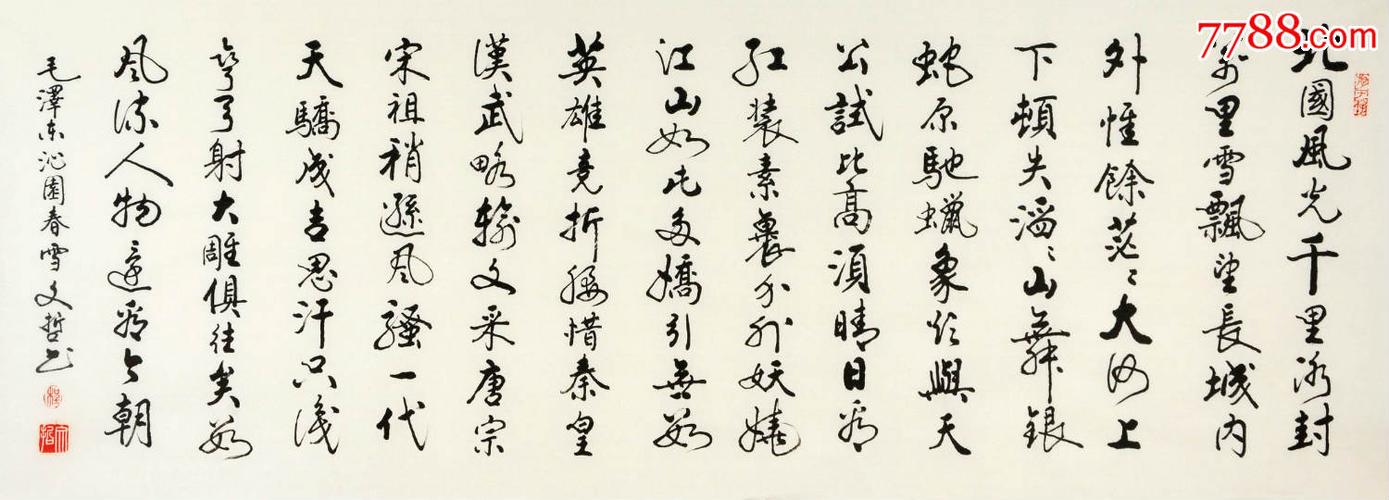 7788.com
北國風光千里冰封
萬里雪飄望長城內
外惟餘茫〻大河上
下頓失滔〻山舞銀
蛇原馳蠟象欲與天
公試比高須晴日看
紅裝素裹分外妖嬈
江山如此多嬌引無數
英雄竞折腰惜秦皇
漢武略輸文采唐宗
宋祖稍遜風騷一代
天驕成吉思汗只識
彎弓射大雕俱往矣數
風流人物還看今朝
毛澤東沁園春雪文哲书